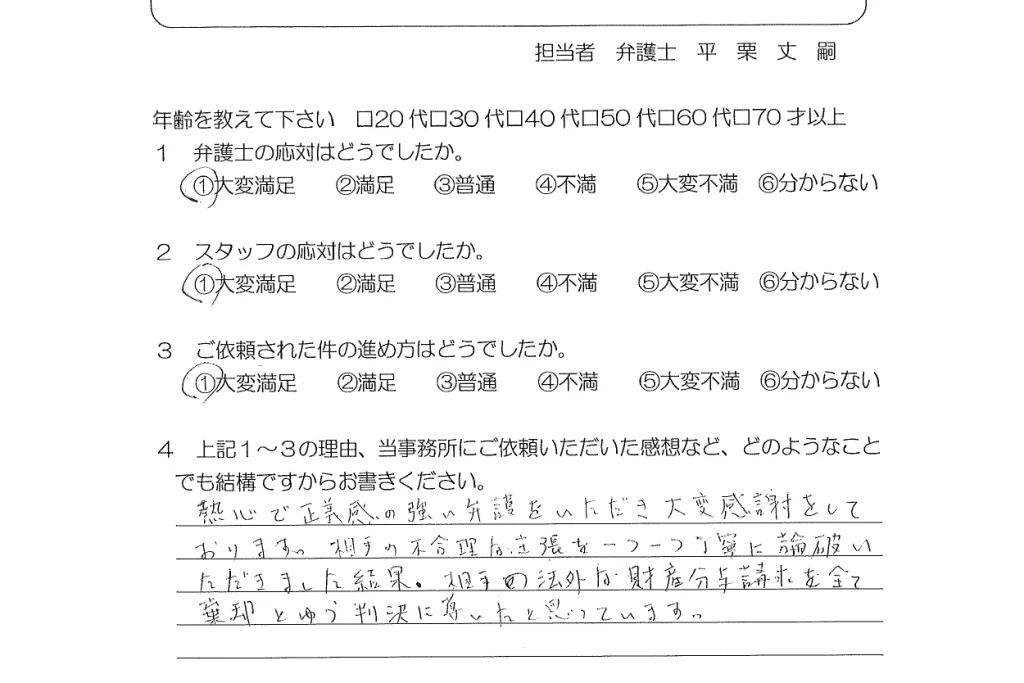 担当者　弁護士　平　栗　丈　嗣
年齢を教えて下さい　□20代□30代□40代□50代□60代□70才以上
１　弁護士の応対はどうでしたか。
①大変満足　②満足　③普通　④不満　⑤大変不満　⑥分からない
２　スタッフの応対はどうでしたか。
①大変満足　②満足　③普通　④不満　⑤大変不満　⑥分からない
３　ご依頼された件の進め方はどうでしたか。
①大変満足　②満足　③普通　④不満　⑤大変不満　⑥分からない
４　上記１～３の理由、当事務所にご依頼いただいた感想など、どのようなこと
でも結構ですからお書きください。
熱心で正義感の強い弁護をいただき大変感謝をして
おります。相手の不合理な主張を一つ一つ丁寧に論破い
ただきました結果。相手の法外な財産分与請求を全て
棄却とゆう判決に導いたと思っています。